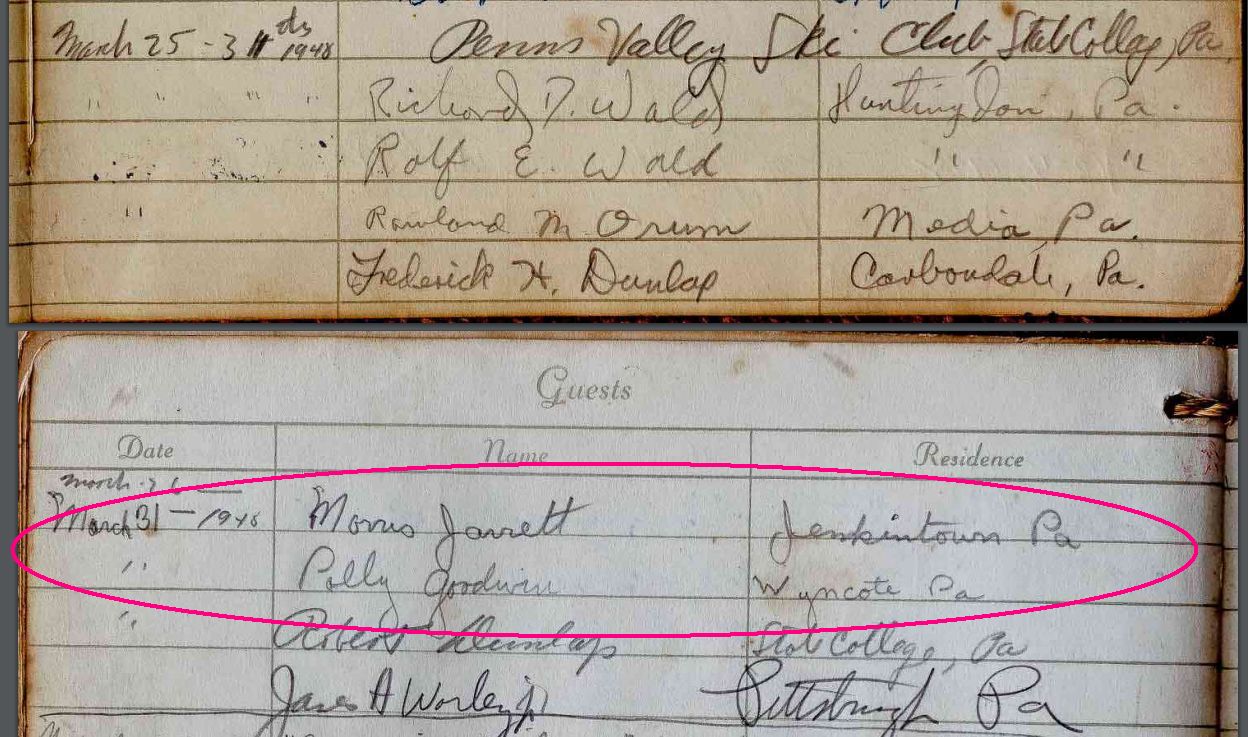 March 25 - 31 1948 Penns Valley Ski Club, State College, Pa.
" " " " Richard D. Wald Huntingdon, Pa.
Rolf E. Wald " "
" Rowland M Orum Media, Pa.
Frederick H. Dunlap Carbondale, Pa.
Guests
Date Name Residence
March 26 —
March 31 — 1948 Morris Jarrett Jenkintown Pa
" Polly Goodwin Wyncote Pa
" Robert Dunlap State College, Pa
A Worley jr Pittsburgh Pa